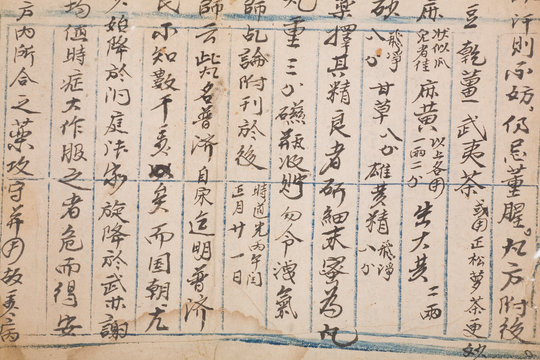 汗則不妨。仍忌葷腥。九方附後
豆 乾薑 武夷茶 或用正松萝茶更妙
麻 狀似瓜兒者佳 麻黄 以上各用一兩二分 生大黄 二兩
砂 飛净 八分 甘草八分 雄黄精 飛净八分
藥擇其精良者研細末蜜為丸
丸重三分磁瓶收貯勿令洩氣
師乩論附刊於後 時道光丙午閏正月廿一日
師云此丸名普济 迨明普济
民不知數千 矣而国朝尤
始降於洞庭法 旋降於武 謝
均值時症大作服之者危而得安
户内所合之藥攻守并用故 病